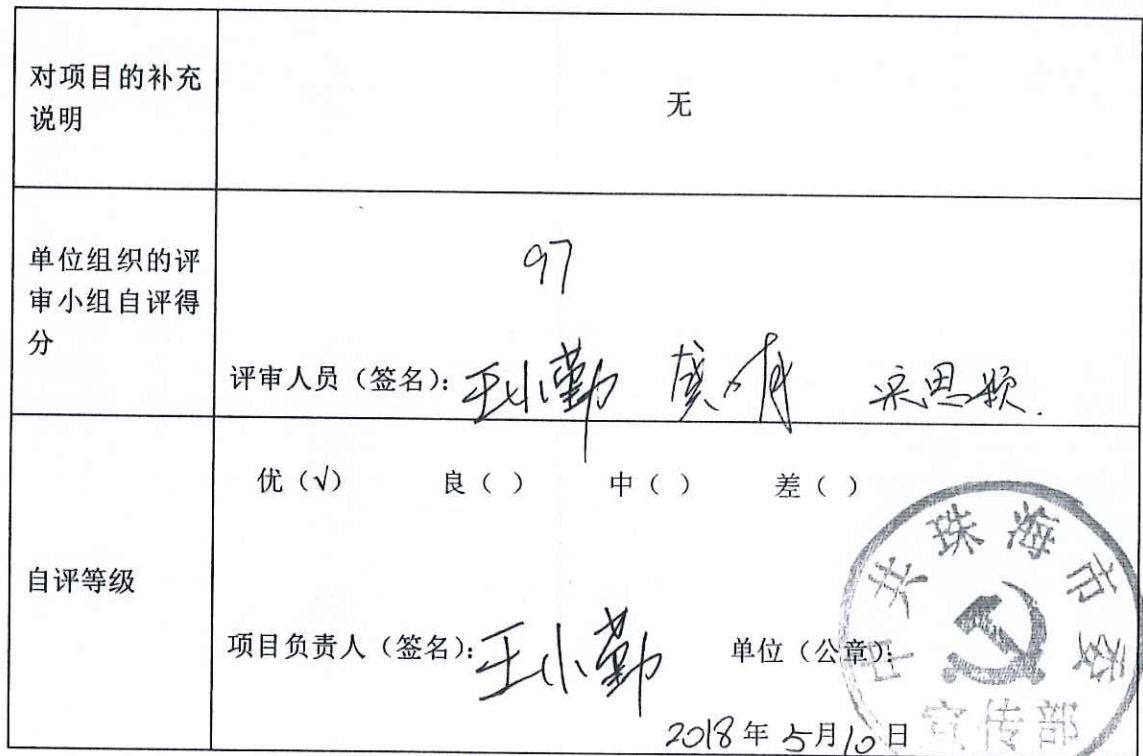 对项目的补充
说明
无
单位组织的评
审小组自评得
分
97
评审人员（签名）：王小勤
自评等级
优（√） 良（ ） 中（ ） 差（ ）
项目负责人（签名）：王小勤 单位（公章）：
2018年5月10日
中共珠海市委
宣传部